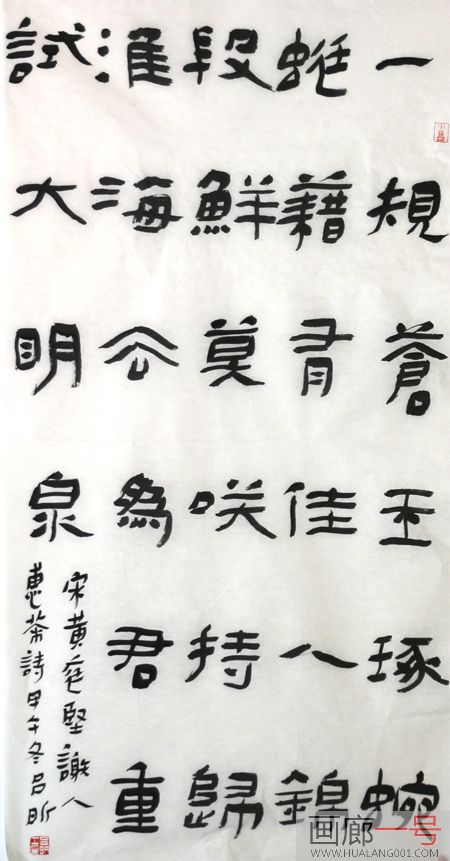 一規蒼玉琢蜿
蜒藉有佳人錦
段鮮莫咲持歸
淮海去為君重
試大明泉
宋黃庭堅謝人
惠茶詩甲午冬呂昕
画廊一号
WWW.HUALANG001.COM